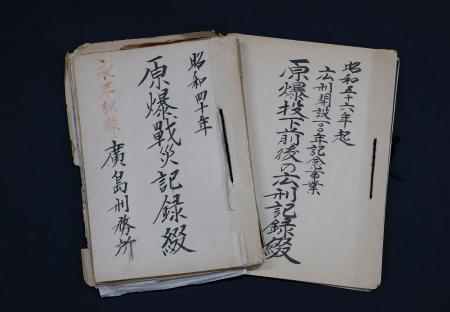 昭和四十年
原爆戰災記録綴
廣島刑務所
永年記録
昭和五十六年起
広刑開設100年記念事業
原爆投下前後の広刑記録綴